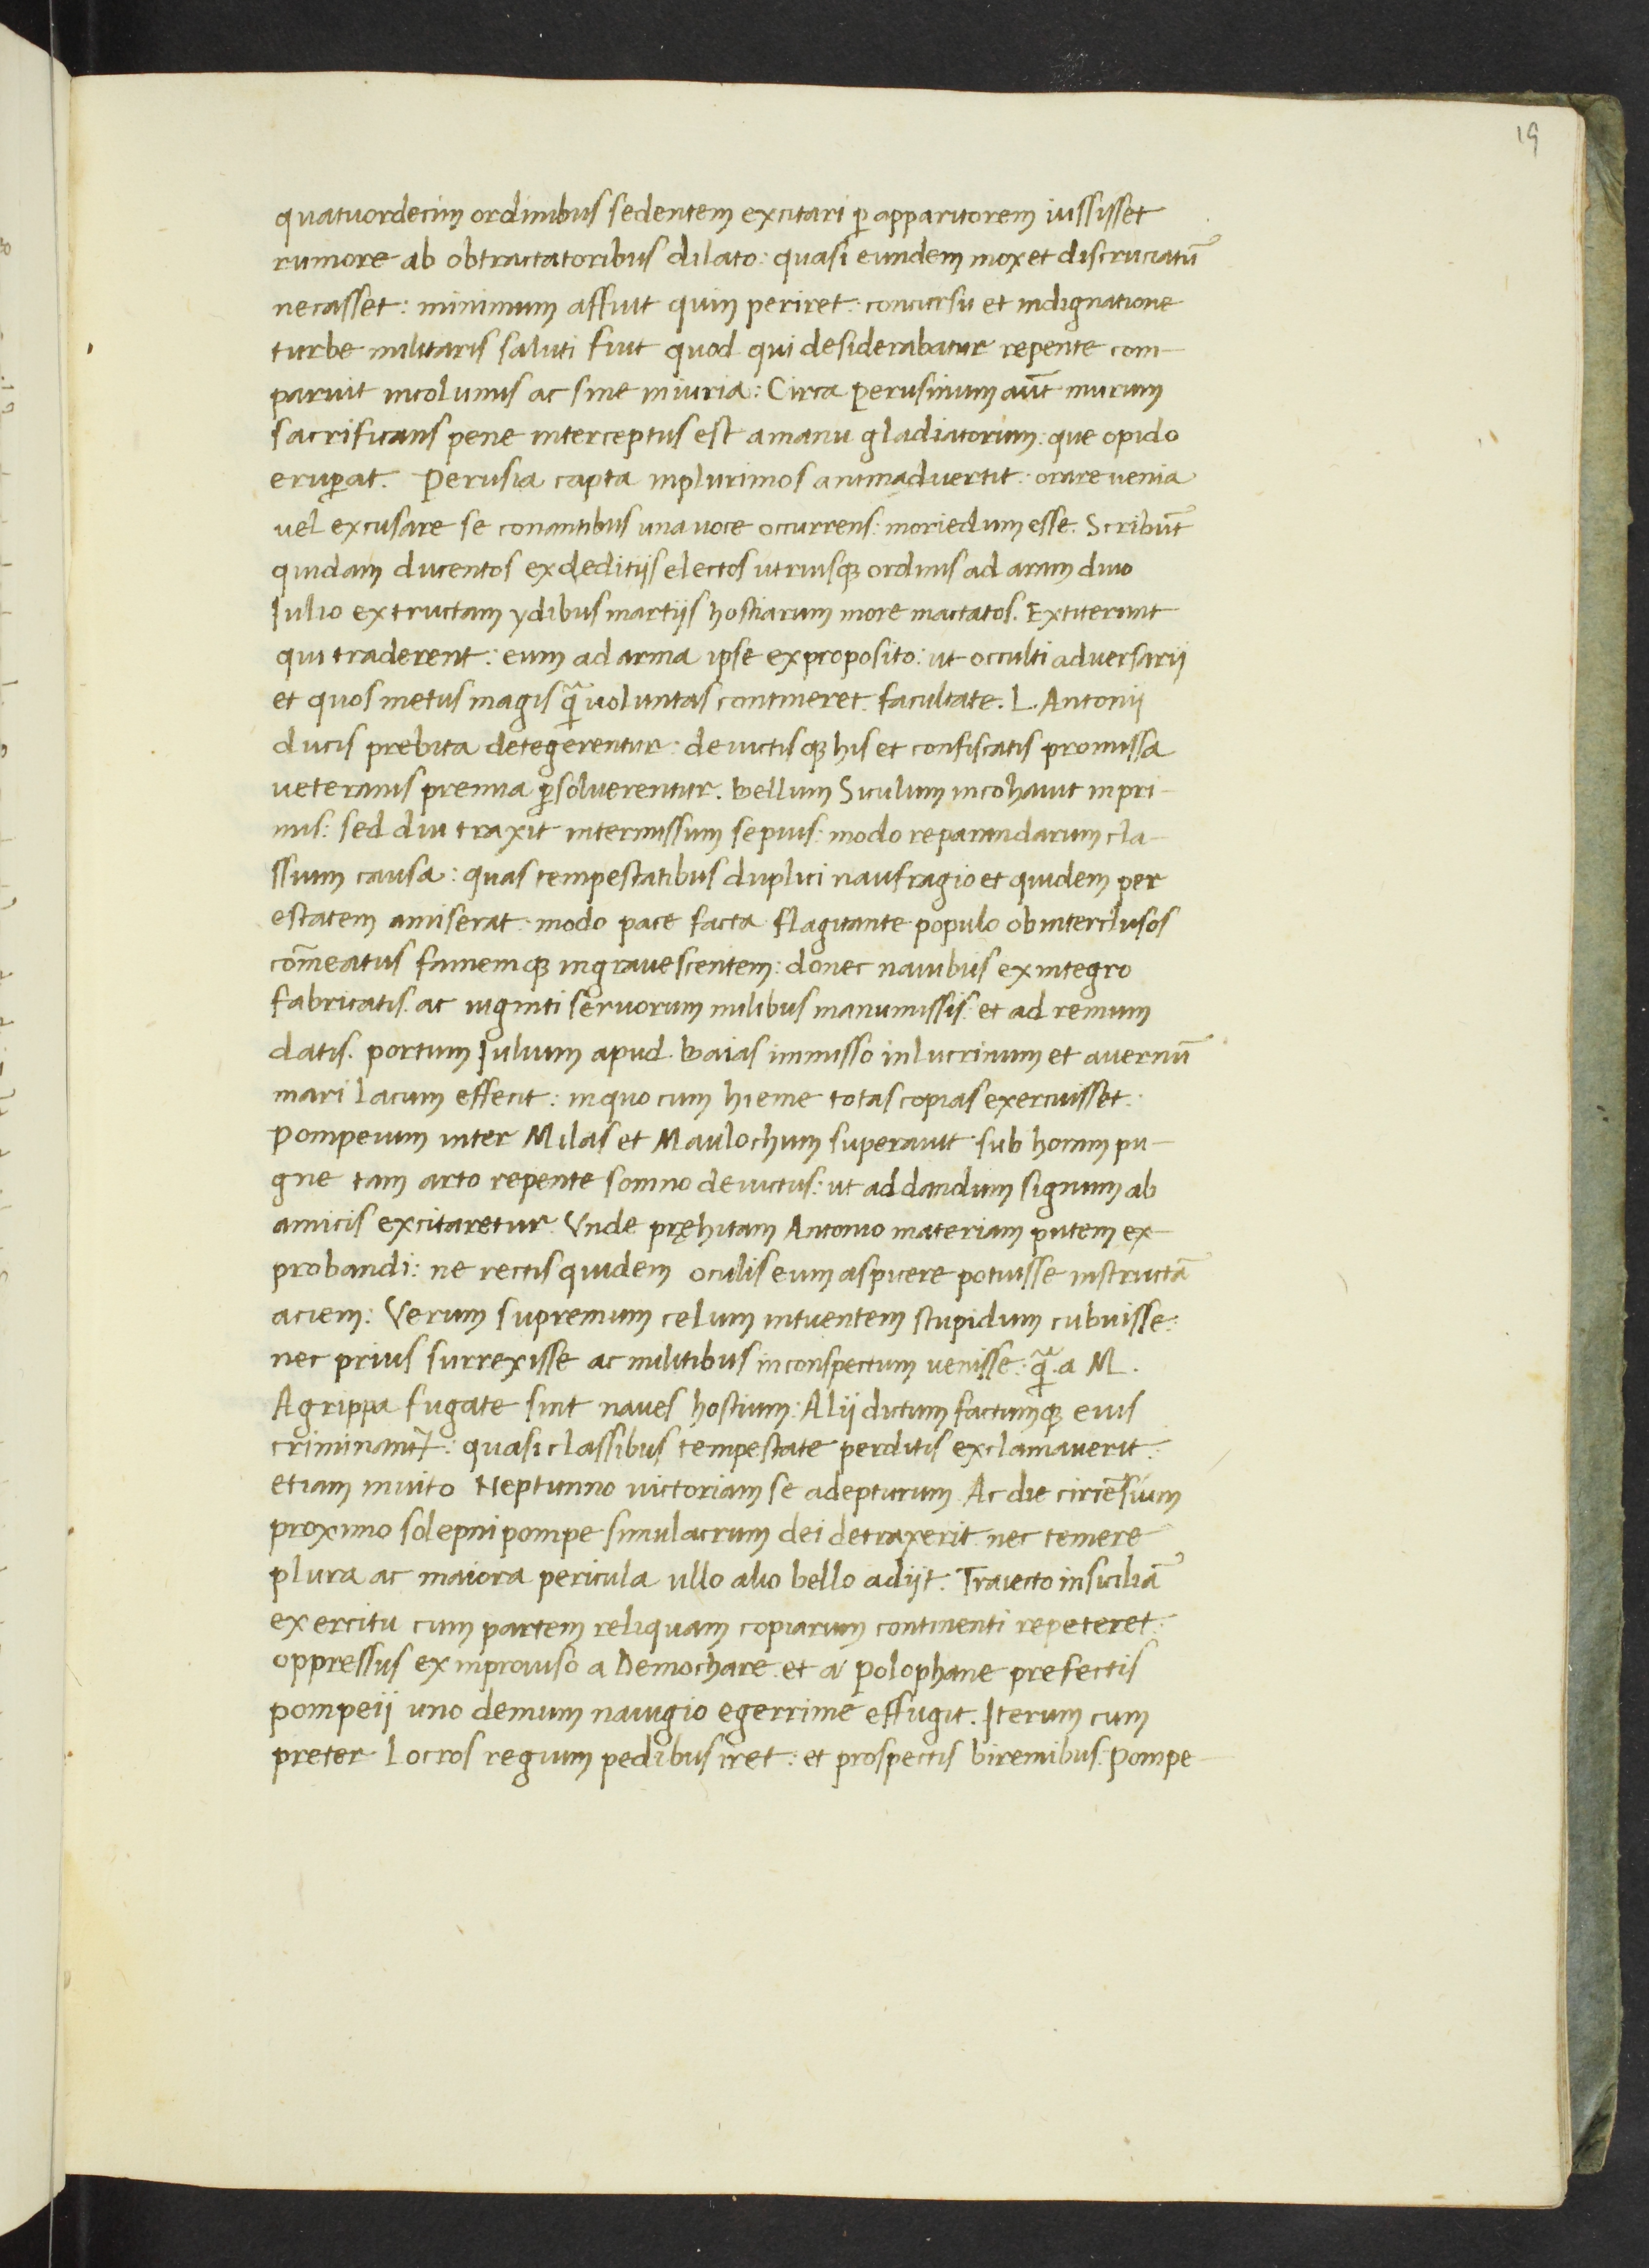 19
quatuordecim ordinibus sedentem excitari ꝑ apparitorem iussisset
rumore ab obtractatoribus dilato: quasi eundem mox et discruciatū
necasset: minimum affuit quin periret: concursu et indignatione
turbe militaris saluti fuit quod qui desiderabatur repente com-
paruit incolumis ac sine iniuria: Circa perusinum aūt murum
sacrificans pene interceptus est a manu gladiatorum: que opido
eruꝑat. Perusia capta in plurimos animadvertit: orare venia
vel excusare se conantibus una voce occurrens: moriedum esse. Scribūt
quidam ducentos ex dedititijs electos utriusqꝫ ordinis ad aram divo
Iulio extructam ydibus martijs hostiarum more mactatos. Extiterunt
qui traderent: eum ad arma ipse ex proposito: ut occulti adversarij
et quos metus magis ꝗ̃ voluntas contineret. facultate. L. Antonij
ducis prebita detegerentur: devictisqꝫ his et confiscatis promissa
veteranis premia ꝑsolverentur. Bellum Siculum incohavit in pri-
mis: sed diu traxit intermissum sepius: modo reparandarum cla-
ssium causa: quas tempestatibus duplici naufragio et quidem per
estatem amiserat: modo pace facta flagitante populo ob interclusos
cōmeatus famemqꝫ ingravescentem: donec navibus ex integro
fabricatis. ac viginti servorum milibus manumissis: et ad remum
datis. portum Iulium apud Baias immisso in lucrinum et avernū
mari lacum effecit: in quo cum hieme totas copias exercuisset:
Pompeium inter Milas et Maulochum superavit sub horam pu-
gne tam arto repente somno devictus: ut ad dandum signum ab
amicis excitaretur. Unde pręhitam Antonio materiam putem ex-
probandi: ne rectis quidem oculis eum aspicere potuisse instructā
aciem: Verum supremum celum intuentem stupidum cubuisse:
nec prius surrexisse ac militibus in conspectum venisse: ꝗ̃ a M.
Agrippa fugate sint naves hostium: Alij dictum factumqꝫ eius
criminant᷑: quasi classibus tempestate perditis exclamaverit:
etiam invito Neptunno victoriam se adepturum. Ac die circēsium
proximo solepni pompe simulacrum dei detraxerit. nec temere
plura ac maiora pericula ullo alio bello adijt. Traiecto in siciliā
exercitu cum partem reliquam copiarum continenti repeteret:
oppressus ex inproviso a Demochare. et a polophane prefectis
pompeij uno demum navigio egerrime effugit. Iterum cum
preter Locros regium pedibus iret: et prospectis biremibus: Pompe-